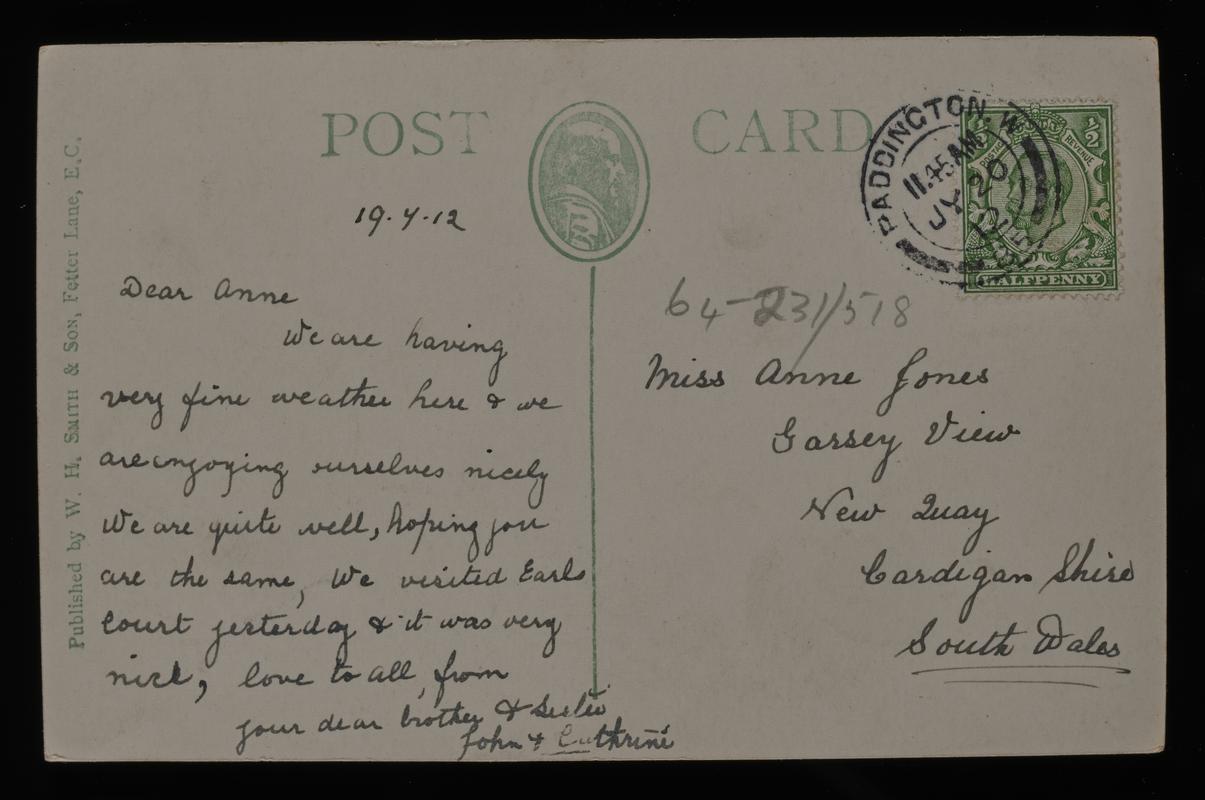 POST CARD
Published by W. H. SMITH & SON, Fetter Lane, E.C.
19.7.12
Dear Anne
We are having
very fine weather here & we
are engoying ourselves nicely
We are quite well, hoping you
are the same, We visited Earls
Court yesterday & it was very
nice, love to all, from
your dear brother & Sister
John & Cathrine
PADDINGTON. W
11.45 AM
JY 20
12
½
POSTAGE REVENUE
HALFPENNY
64-231/518
Miss Anne Jones
Garsey View
New Quay
Cardigan Shire
South Wales